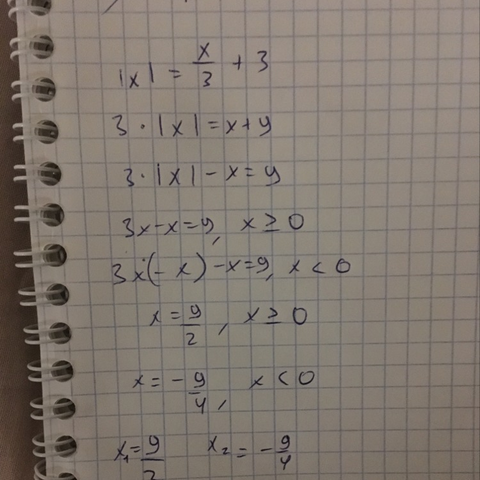 |x| = x/3 + 3
3 · |x| = x + 9
3 · |x| - x = 9
3x - x = 9, x ≥ 0
3x(-x) - x = 9, x < 0
x = 9/2, x ≥ 0
x = -9/4, x < 0
x₁ = 9/2 x₂ = -9/4